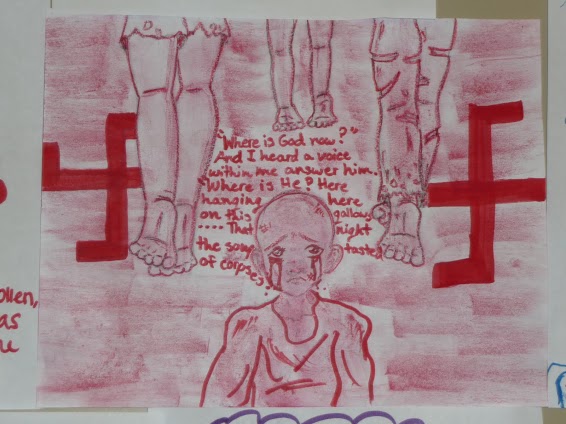 "Where is God now?"
And I heard a voice
within me answer him.
"Where is He? Here
hanging here
on this gallows
.... That night
the soup tasted
of corpses..."
ollen,
as